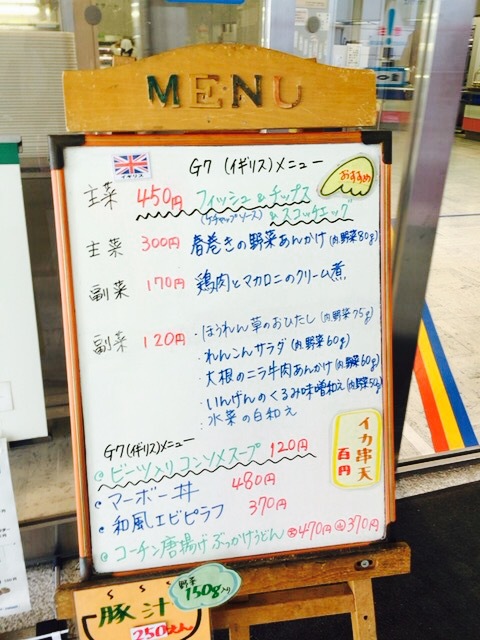 MENU
イギリス
G7 (イギリス)メニュー
おすすめ
主菜 450円 フィッシュ&チップス
(ケチャップソース) &スコッチエッグ
主菜 300円 春巻きの野菜あんかけ(内野菜80g)
副菜 170円 鶏肉とマカロニのクリーム煮
副菜 120円 ・ほうれん草のおひたし(内野菜75g)
・れんこんサラダ(内野菜60g)
・大根のニラ牛肉あんかけ(内野菜60g)
・いんげんのくるみ味噌和え(内野菜50g)
・水菜の白和え
イカ串天
百円
G7(イギリス)メニュー
@ビーツ入りコンソメスープ 120円
@マーボー丼 480円
@和風エビピラフ 370円
@コーチン唐揚げぶっかけうどん 大470円 小370円
豚汁
250えん
野菜
150g入り